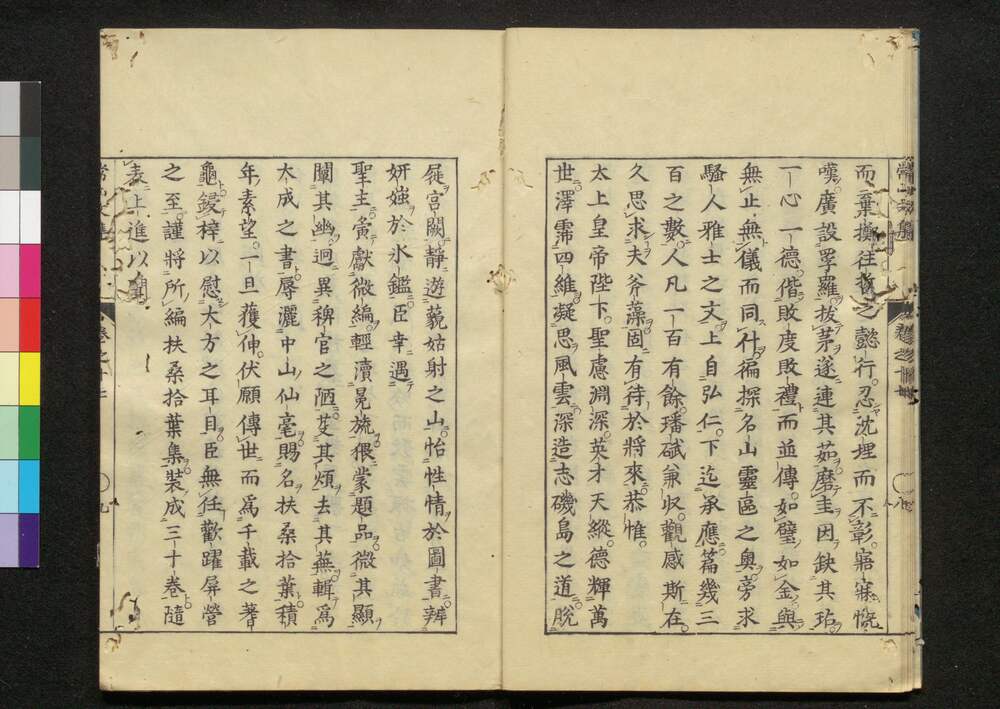 而棄擲往哲之懿行忍沈埋而不彰寤寐慨
嘆廣設罘羅拔茅遂連其茹磨圭因鈌其玷
一心一德偕敗度敗禮而並傳如璧如金與
無止無儀而同什徧探名山靈區之奧旁求
騷人雅士之文上自弘仁下迄承應篇幾三
百之數人凡一百有餘璠碔兼収觀感斯在
久思求夫斧藻固有待於將來恭惟
太上皇帝陛下聖慮淵深英才天縱德輝萬
世澤霈四維凝思風雲深造志磯島之道脫
屣宮闕靜遊藐姑射之山怡性情於圖書辨
妍媸於氷鑑臣幸遇
聖主肏獻微編輕瀆冕旒猥蒙題品微其顯
闡其幽迥異稗官之陋芟其煩去其蕪輯爲
大成之書辱灑中山仙毫賜名扶桑拾葉積
年素望一旦獲伸伏願傳世而爲千載之蓍
龜鋟梓以慰大方之耳目臣無任歡躍屏營
之至謹將所編扶桑拾葉集裝成三十卷隨
表上進以聞